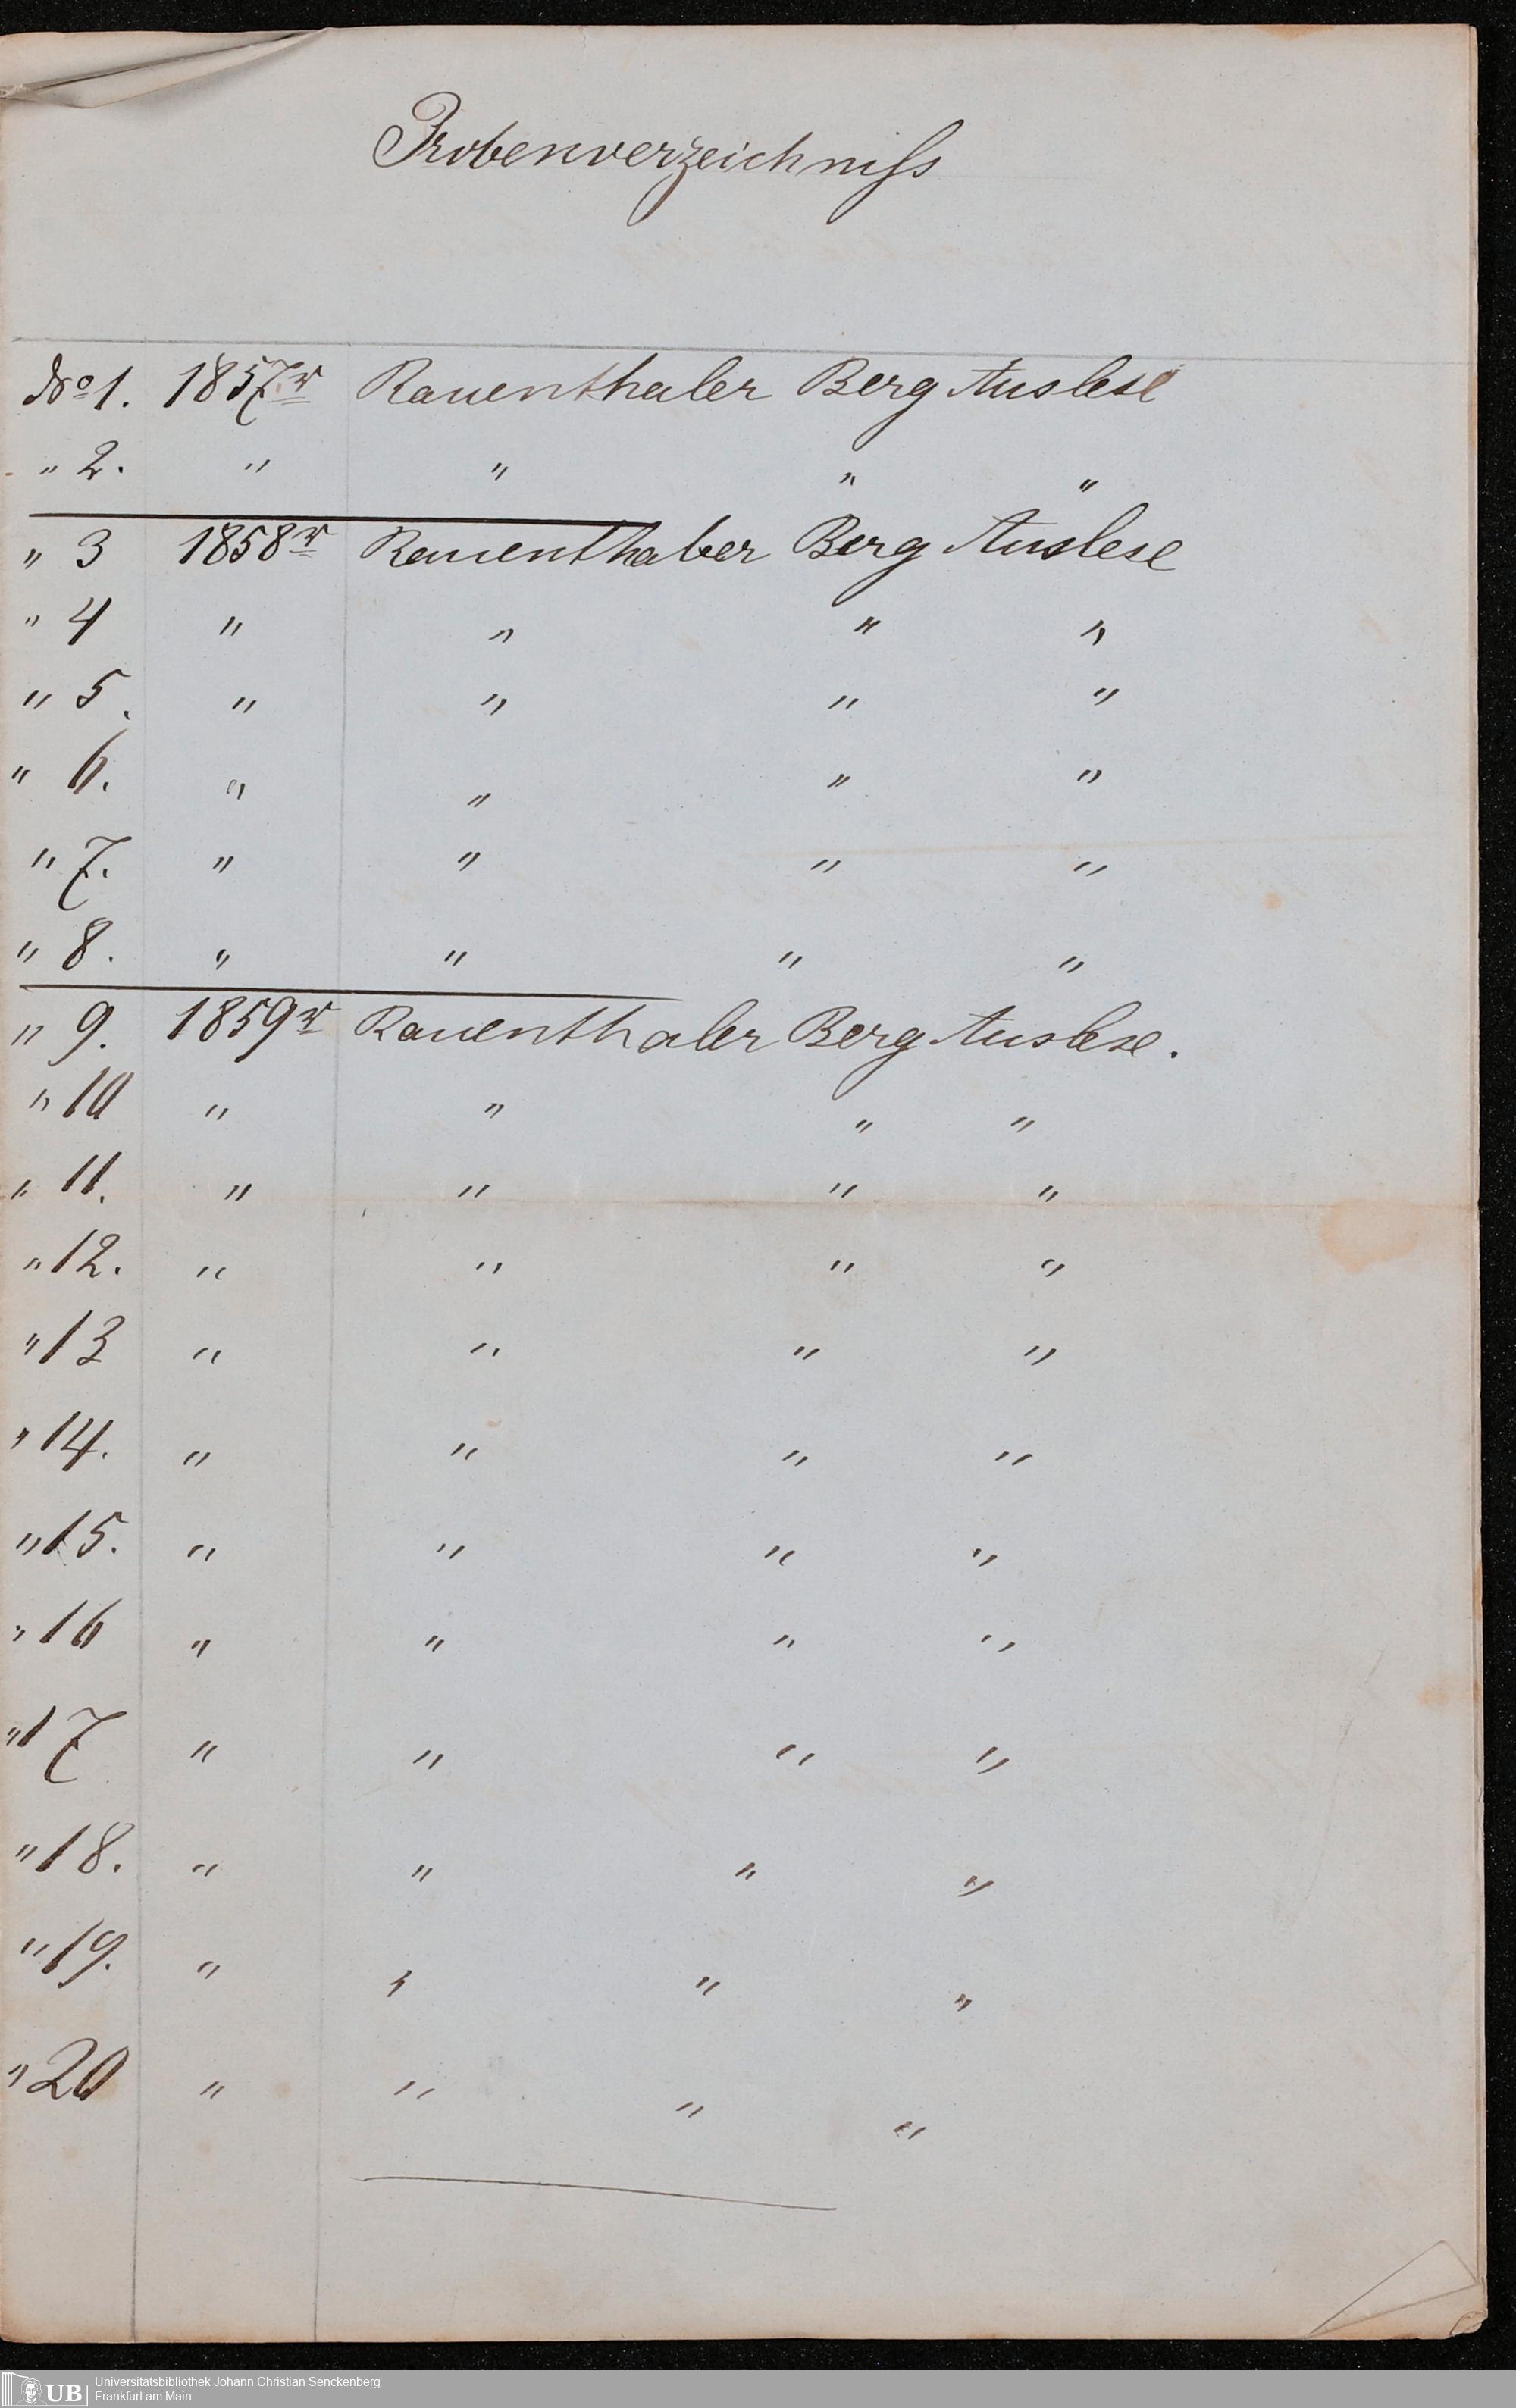 Probenverzeichniss
No 1. 1857r Rauenthaler Berg Auslese
" 2. " " " "
" 3 1858r Rauenthaler Berg Auslese
" 4 " " " "
" 5. " " " "
" 6. " " " "
" 7. " " " "
" 8. " " " "
" 9. 1859r Rauenthaler Berg Auslese.
" 10 " " " "
" 11. " " " "
" 12. " " " "
" 13 " " " "
" 14. " " " "
" 15. " " " "
" 16 " " " "
" 17 " " " "
" 18. " " " "
" 19. " " " "
" 20 " " " "
UB Universitätsbibliothek Johann Christian Senckenberg
Frankfurt am Main